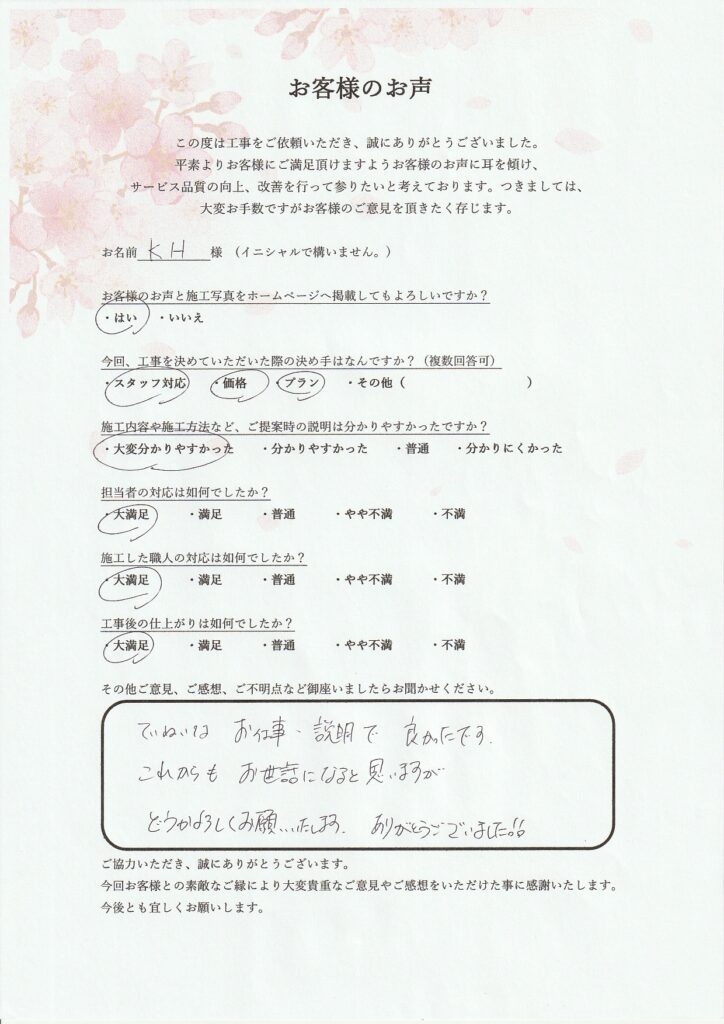 お客様のお声
この度は工事をご依頼いただき、誠にありがとうございました。
平素よりお客様にご満足頂けますようお客様のお声に耳を傾け、
サービス品質の向上、改善を行って参りたいと考えております。つきましては、
大変お手数ですがお客様のご意見を頂きたく存じます。
お名前 KH 様 （イニシャルで構いません。）
お客様のお声と施工写真をホームページへ掲載してもよろしいですか？
・はい ・いいえ
今回、工事を決めていただいた際の決め手はなんですか？（複数回答可）
・スタッフ対応 ・価格 ・プラン ・その他（ ）
施工内容や施工方法など、ご提案時の説明は分かりやすかったですか？
・大変分かりやすかった ・分かりやすかった ・普通 ・分かりにくかった
担当者の対応は如何でしたか？
・大満足 ・満足 ・普通 ・やや不満 ・不満
施工した職人の対応は如何でしたか？
・大満足 ・満足 ・普通 ・やや不満 ・不満
工事後の仕上がりは如何でしたか？
・大満足 ・満足 ・普通 ・やや不満 ・不満
その他ご意見、ご感想、ご不明点など御座いましたらお聞かせください。
ていねいな お仕事・説明で 良かったです.
これからも お世話になると思いますが
どうかよろしくお願いいたします. ありがとうございました!!
ご協力いただき、誠にありがとうございます。
今回お客様との素敵なご縁により大変貴重なご意見やご感想をいただけた事に感謝いたします。
今後とも宜しくお願いします。